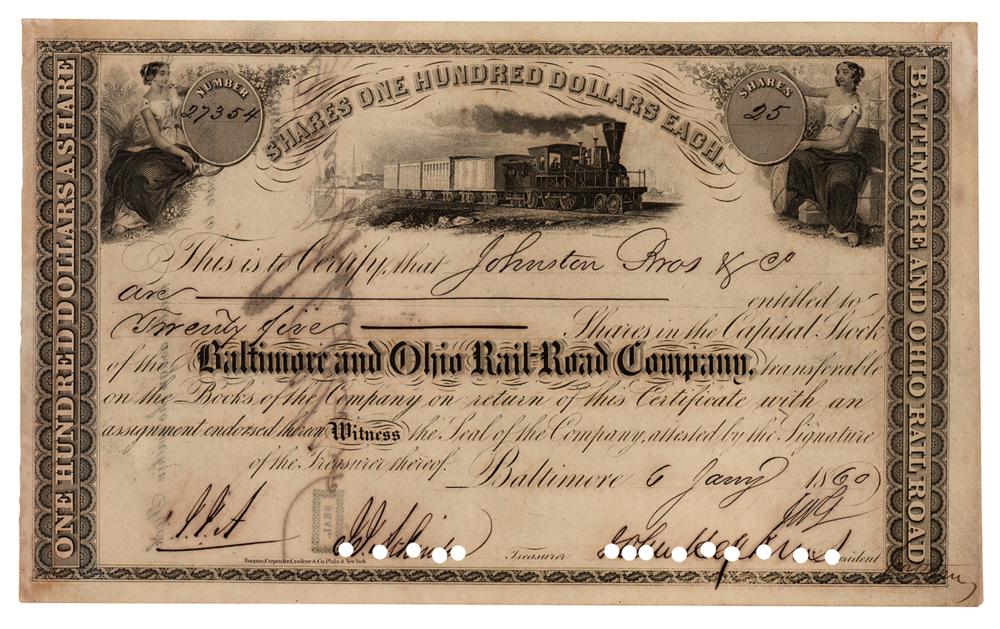 NUMBER
27354
SHARES ONE HUNDRED DOLLARS EACH.
SHARES
25
ONE HUNDRED DOLLARS A SHARE
BALTIMORE AND OHIO RAIL ROAD
This is to Certify, that Johnston Bros & Co
are entitled to
Twenty five Shares in the Capital Stock
of the Baltimore and Ohio Rail-Road Company, transferable
on the Books of the Company on return of this Certificate with an
assignment endorsed thereon Witness the Seal of the Company, attested by the Signature
of the Treasurer thereof. Baltimore 6 Jany 1860
J.J.A
SEAL
Treasurer
President
Toppan, Carpenter, Casilear & Co. Phila. & New York